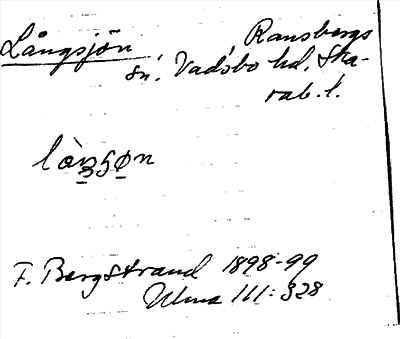 Långsjön Ransbergs
sn. Vadsbo hd, Ska-
rab. l.
làŋsøn
F. Bergstrand 1898-99
Ulma 111:328